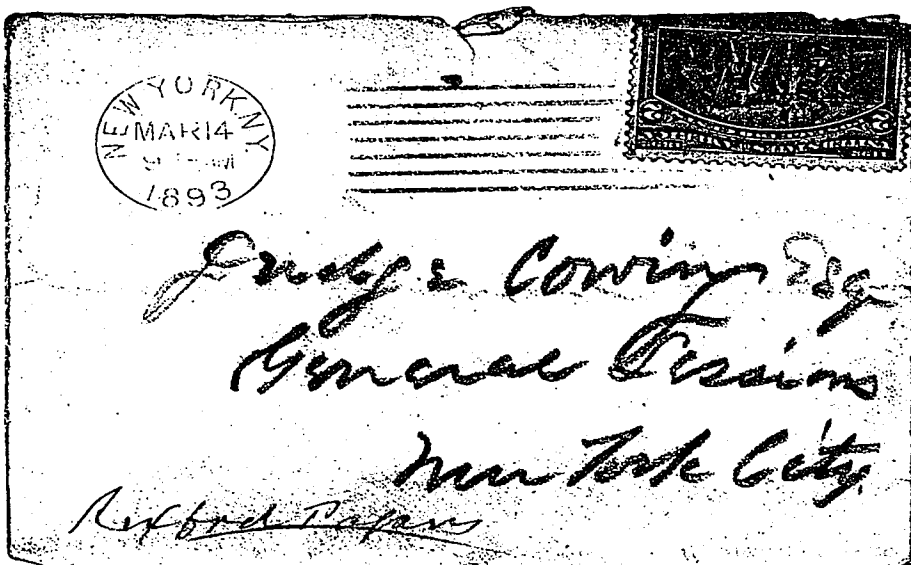 NEW YORK NY
MAR 14
1893
Judge Cowing Esq.
General Sessions
New York City.
Rexford Papers